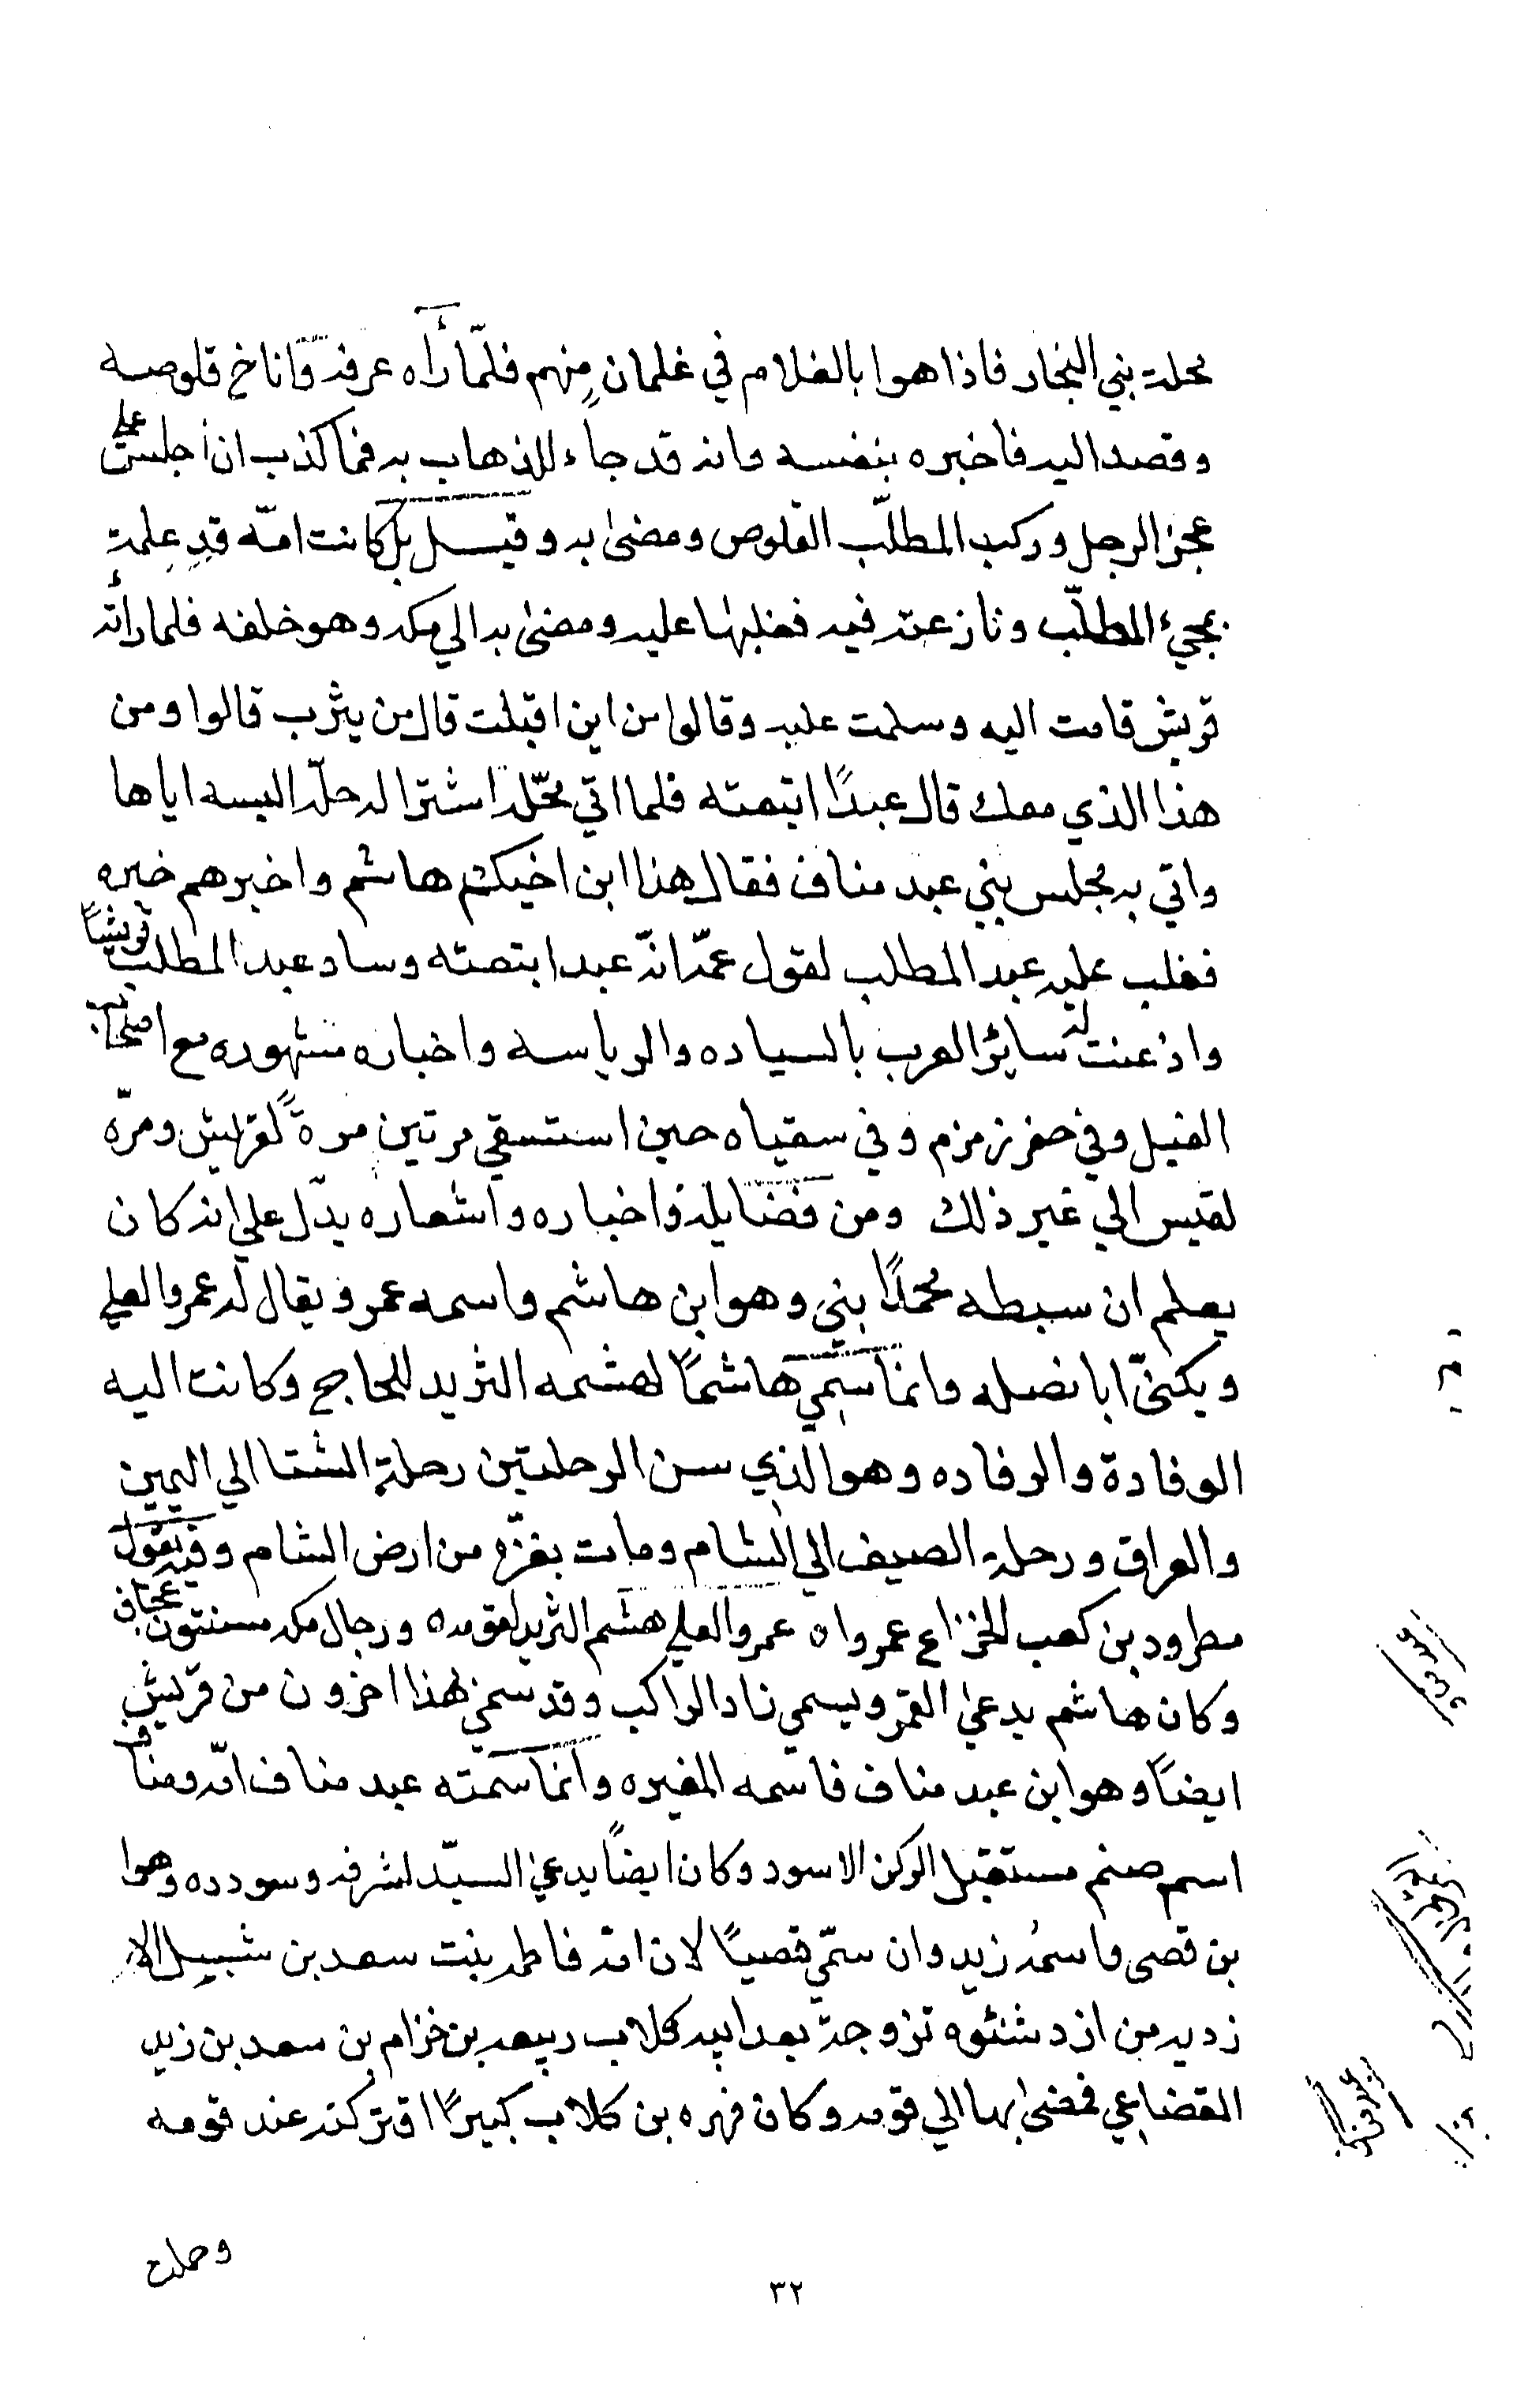 محلة بني النجار فاذا هوا بالغلام في غلمان منهم فلمّا رأه عرفه واناخ قلوصه
وقصد اليه فاخبره بنفسه وانه قد جاء للذهاب به فما كذب ان جلس على
عجز الرحل وركب المطلّب القلوص ومضى به وقيل بل كانت امّه قد علمة
بمجيء المطلّب ونازعته فيه فغلبها عليه ومضى به الي مكه وهو خلفه فلما رأته
قريش قامت اليه وسلمت عليه وقالوا من اين اقبلت قال من يثرب قالوا ومن
هذا الذي معك قال عبدًا ابتعته فلما اتي محّله اشترا له حلّه البسه اياها
واتي به مجلس بني عبد مناف فقال هذا ابن اخيكم هاشم واخبرهم خبره
فغلب عليه عبد المطلب لقول عمّه انّه عبد ابتعته وساد عبد المطلب قريشاً
واذعنت له سائر العرب بالسياده والرياسه واخباره مشهوره مع اصحاب
الفيل وفي حفر زمزم وفي سقياه حين استسقي مرتين مرةً لقريش ومرّه
لقيس الي غير ذلك ومن فضايله واخباره واشعاره يدّل علي انه كان
يعلم ان سبطه محمدًا نبي وهو ابن هاشم واسمه عمرو يقال له عمرو العلي
ويكنّى ابا نضله وانما سمي هاشمًا لهشمه الثريد للحاجج وكانت اليه
الوفادة والرفاده وهو الذي سن الرحلتين رحلة الشتا الي اليمين
والعراق ورحلة الصيف الي الشام ومات بغزّه من ارض الشام وفيه يقول
مطرود بن كعب الخزاع عمرواه عمرو العلي هشم الثريد لقومه ورجال مكه مسنتون عجاف
وكان هاشم يدعى القمر ويسمي زاد الراكب وقد سمي لهذا اخرون من قريش
ايضاً وهو ابن عبد مناف فاسمه المغيره وانما سمته عبد مناف امّه ومناف
اسم صنم مستقبل الركن الاسود وكان ايضاً يدعى السيّد لشرفه وسودده وهوا
بن قصى واسمهُ زيد وان سمّي قصيًا لان امه فاطمه بنت سعد بن شبيل الا
زديه من ازد شنئوه تزوجة بعد ابيه كلاب ربيعه بن حزام بن سعد بن زيد
القضاعي فمضى بها الي قومه وكان زهره بن كلاب كبيرًا فتركته عند قومه
وحملت
٣٢